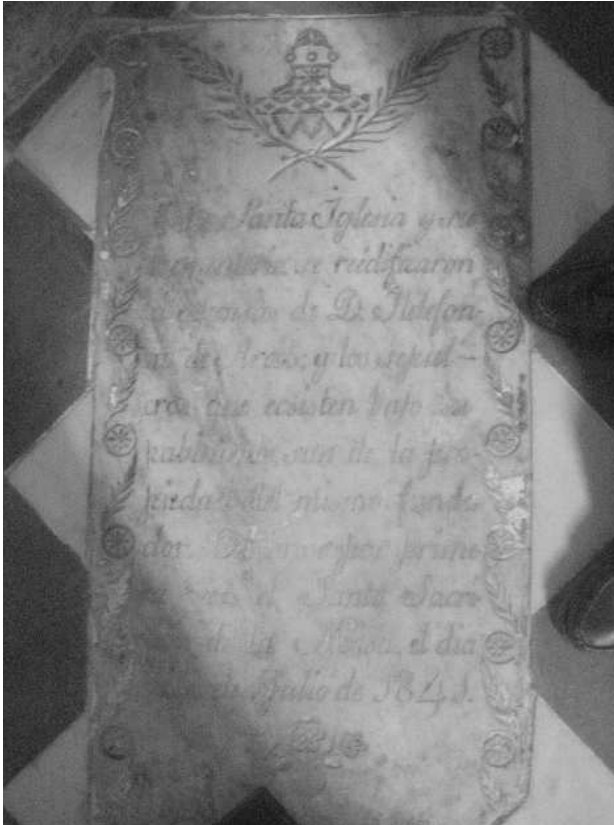 Santa Iglesia y su
se reidificaron
de D. Ildefon-
so de Arcos; y los sepul-
cros que ecsisten bajo su
pabimento, son de la pro-
piedad del mismo funda-
dor. por prime
ra vez el Santo Sacri
de la Misa, el dia
de Julio de 1841.